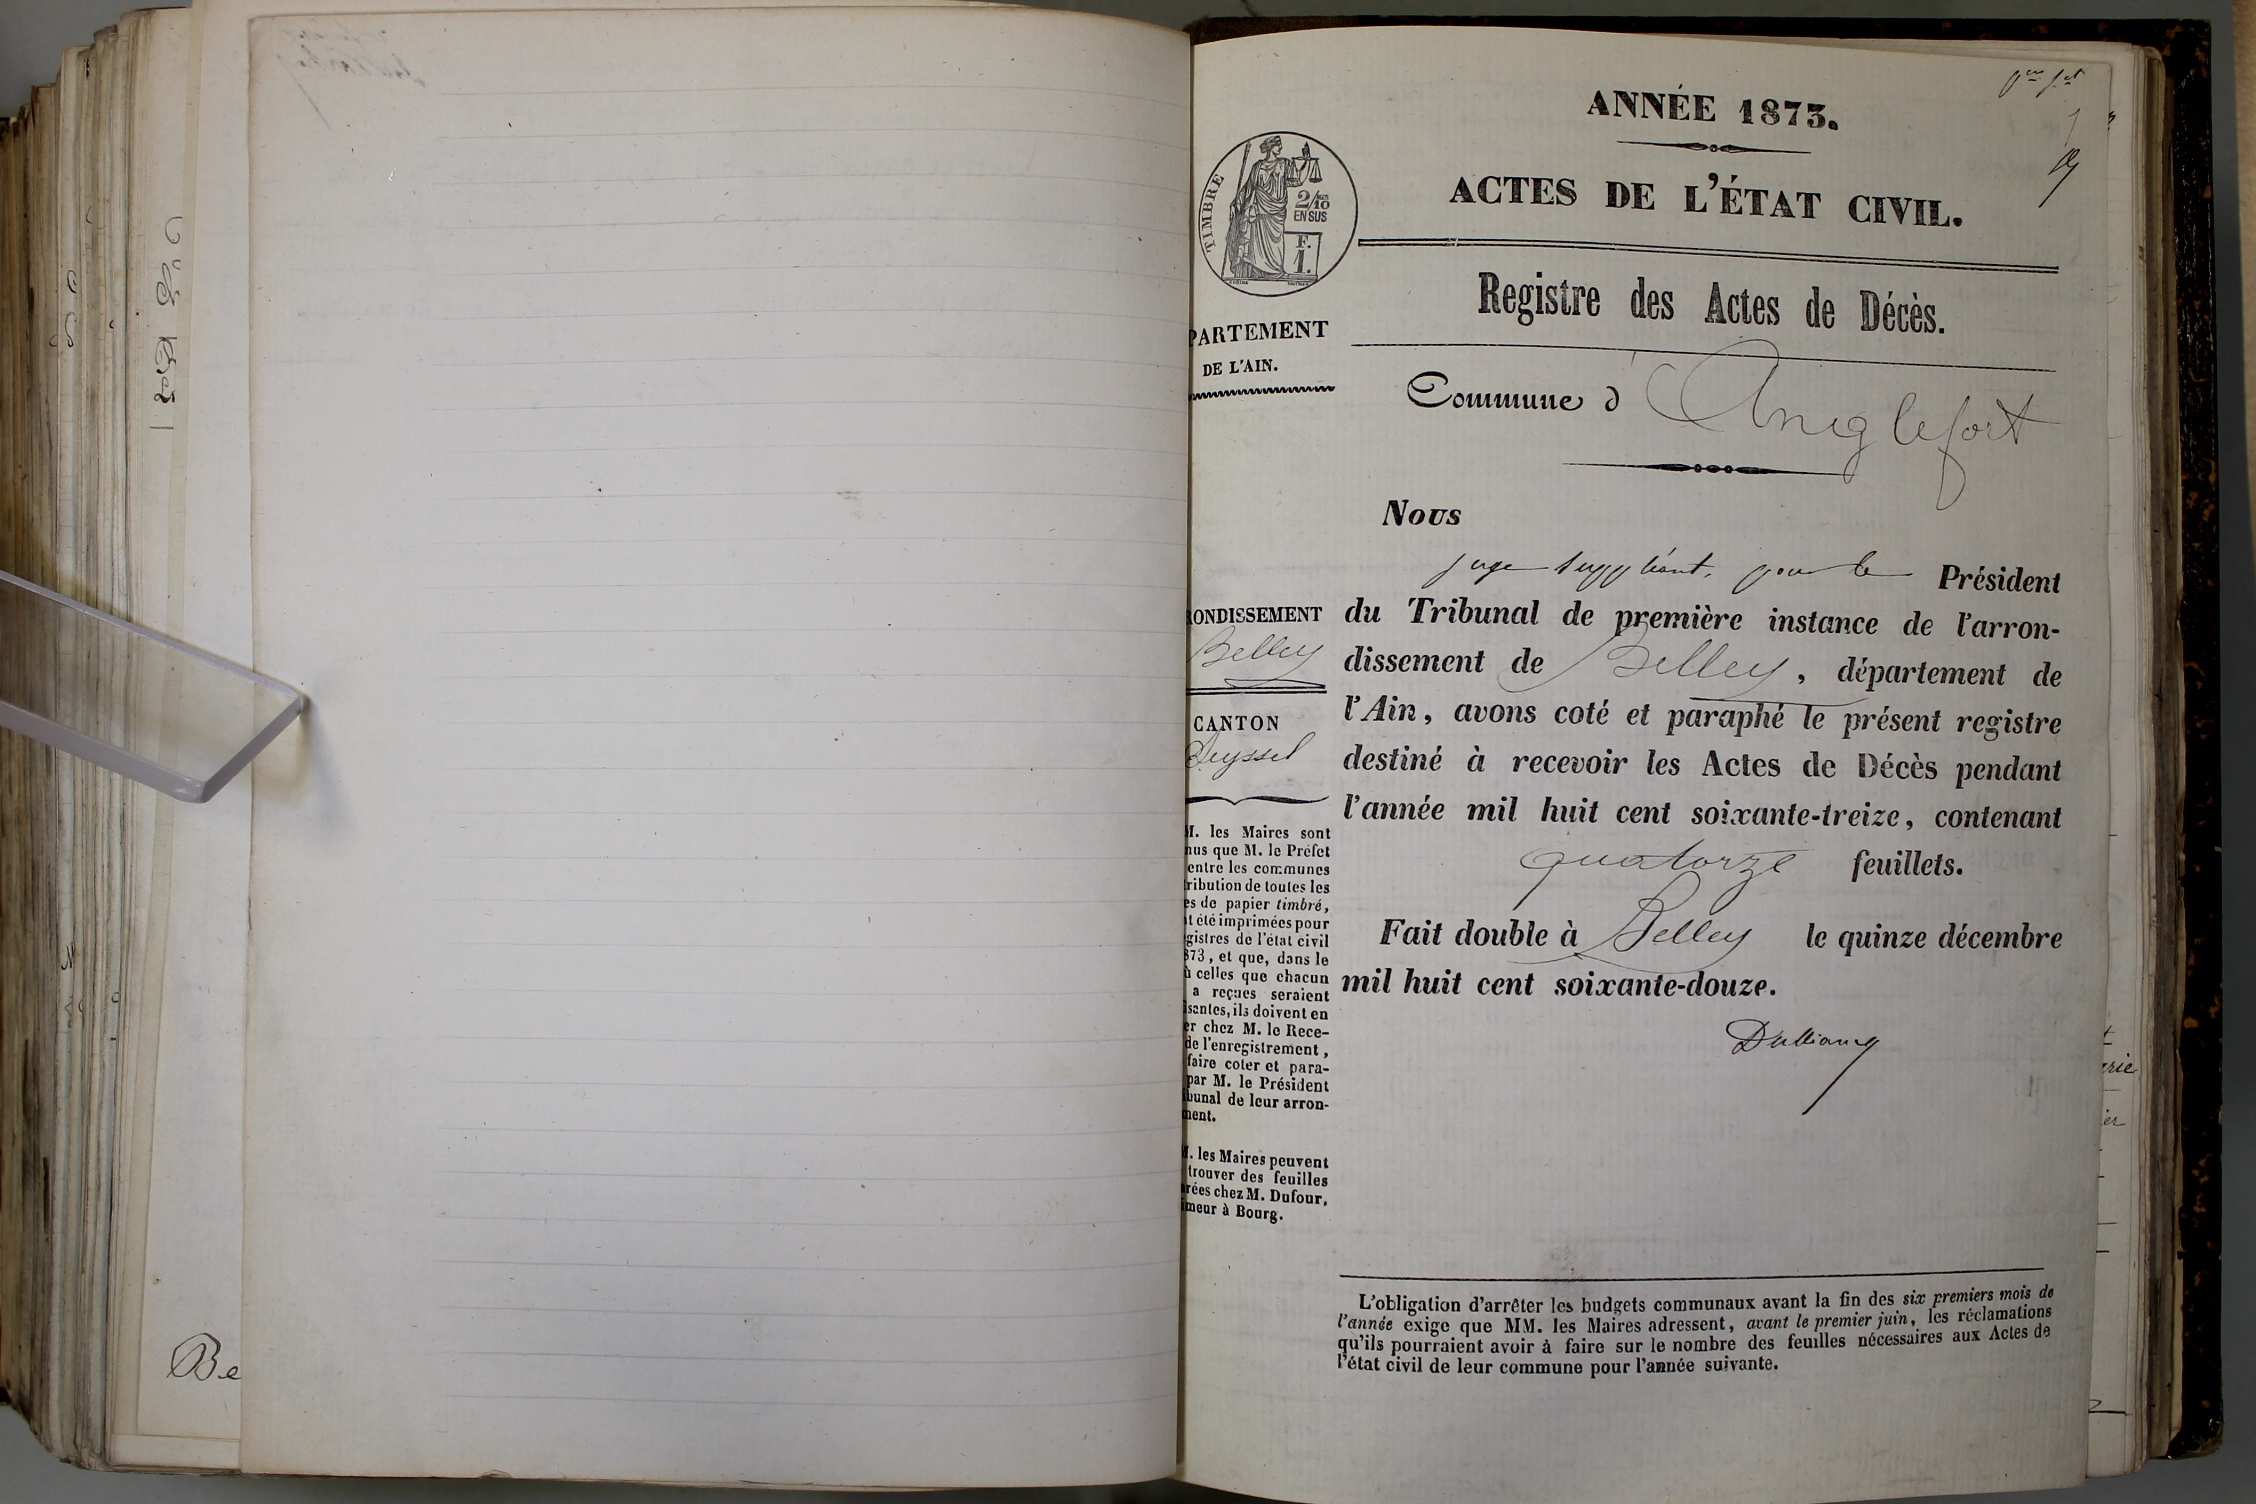 ANNÉE 1873.
ACTES DE L'ÉTAT CIVIL.
TIMBRE
2/10
EN SUS
F.
1.
Registre des Actes de Décès.
PARTEMENT
DE L'AIN.
Commune d'Anglefort
Nous
juge suppléant, pour le Président
du Tribunal de première instance de l'arron-
dissement de Belley, département de
l'Ain, avons coté et paraphé le présent registre
destiné à recevoir les Actes de Décès pendant
l'année mil huit cent soixante-treize, contenant
quatorze feuillets.
Fait double à Belley le quinze décembre
mil huit cent soixante-douze.
RONDISSEMENT
Belley
CANTON
Seyssel
M. les Maires sont
nus que M. le Préfet
entre les communes
ribution de toutes les
es de papier timbré,
t été imprimées pour
gistres de l'état civil
873, et que, dans le
ù celles que chacun
a reçues seraient
isantes, ils doivent en
er chez M. le Rece-
de l'enregistrement,
faire coter et para-
par M. le Président
bunal de leur arron-
ment.
M. les Maires peuvent
trouver des feuilles
rées chez M. Dufour,
imeur à Bourg.
L'obligation d'arrêter les budgets communaux avant la fin des six premiers mois de
l'année exige que MM. les Maires adressent, avant le premier juin, les réclamations
qu'ils pourraient avoir à faire sur le nombre des feuilles nécessaires aux Actes de
l'état civil de leur commune pour l'année suivante.
Be